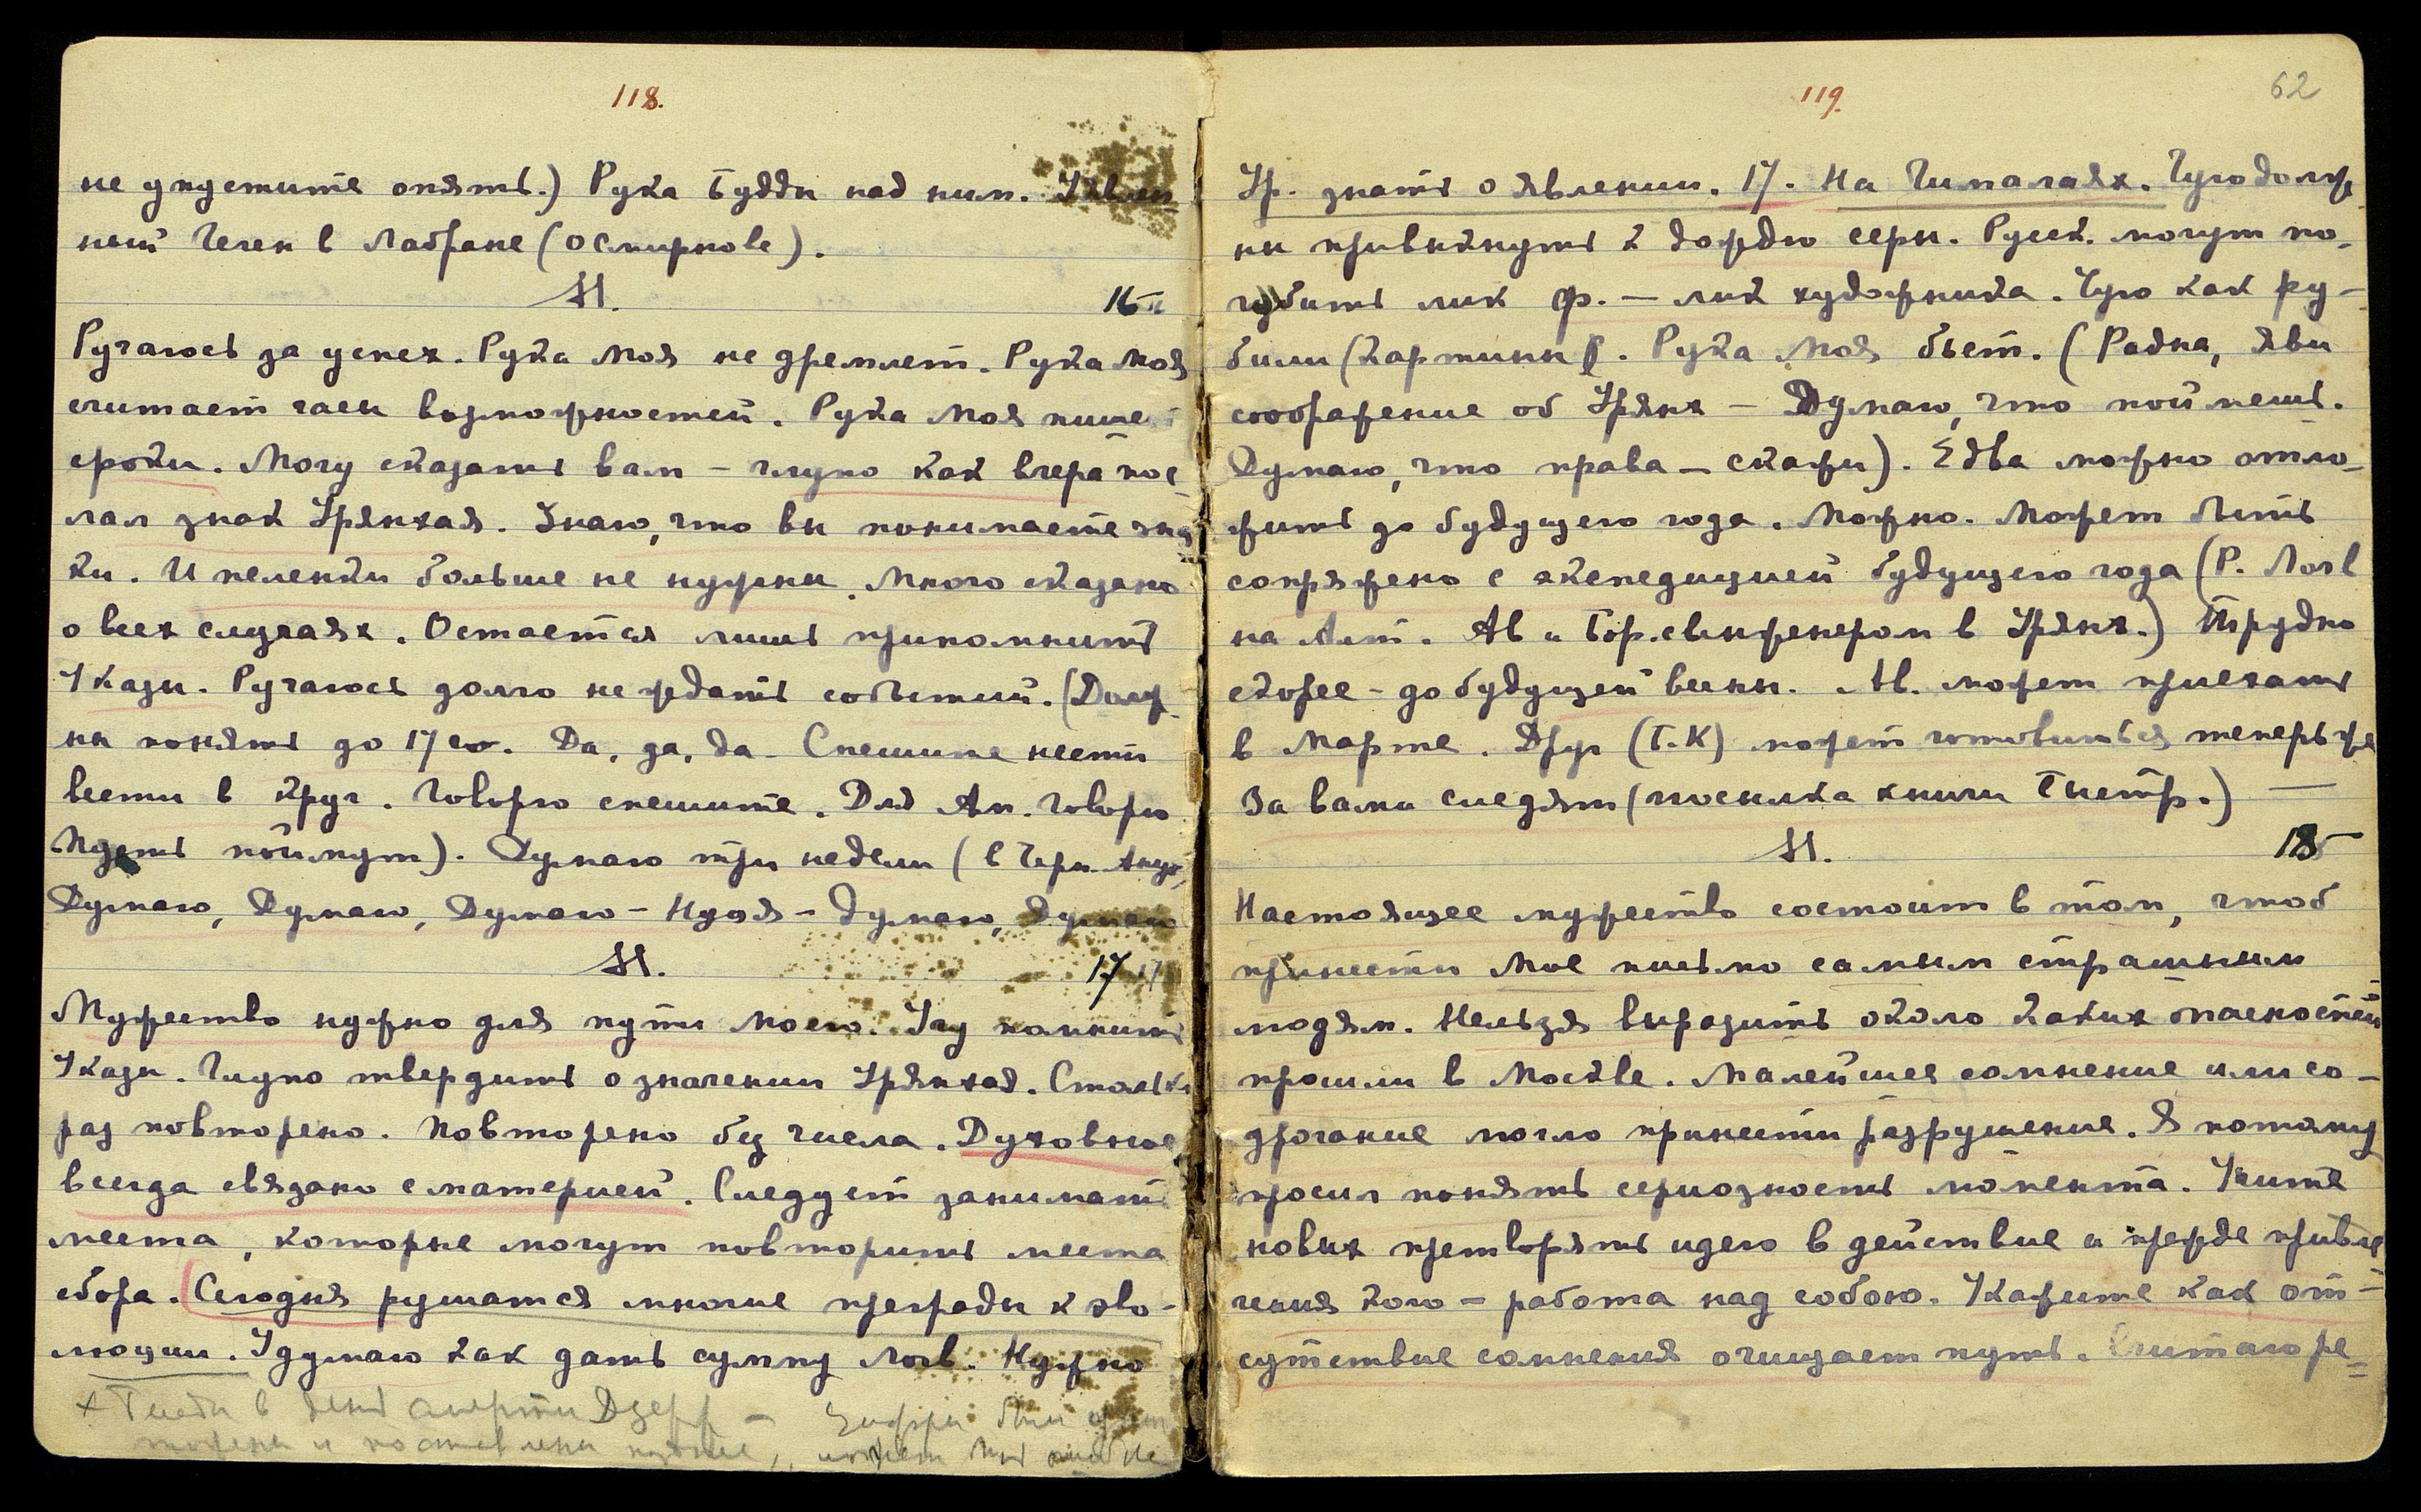 118.
не упустите опять.) Рука Будды над ним. Явлен
ный Челек в Лабране (о Смирнове).
M. 16
Ручаюсь за успех. Рука Моя не дремлет. Рука Моя
считает часы возможностей. Рука Моя пишет
сроки. Могу сказать вам – глупо как вчера пос-
лал знак Урянхая. Знаю, что вы понимаете зна
ки. И пеленки больше не нужны. Много сказано
о всех случаях. Остается лишь припомнить
Указы. Ручаюсь долго не ждать событий. (Долж-
ны понять до 17го. Да, да, да. Спешите нести
вести в круг. Говорю спешите. Для Ан. Говорю
Пусть поймут). Думаю три недели (в Черн.
Думаю, Думаю, Думаю – Нуця – Думаю, Думаю
M. 17
Мужество нужно для пути Моего. Учу помнить
Указы. Глупо твердить о значении Урянхая. Столько
раз повторено. Повторено без числа. Духовное
всегда связано с материей. Следует занимать
места, которые могут повторить места
сбора. Сегодня рушатся многие преграды к эво-
люции. Удумаю как дать сумму Логв. Нужно
+ Беседы в день смерти Дзерж – Цифры были
и поставлены позднее, может быть
119.
62
Ур. знать о явлении. 17. На Гималаях. Чую долж
ны привыкнуть к дождю серы. Русск. могут по-
губить лик Ф. – лик художника. Чую как ру-
били (картины). Рука Моя бьет. (Радна, яви
соображение об Урянх – Думаю, что поймешь.
Думаю, что права – скажи). Едва можно отло-
жить до будущего года. Можно. Может быть
сопряжено с экспедицией будущего года (Р. Логв
на Алт. Ав и Бор. с инженером в Урянх.) Трудно
скорее – до будущей весны. Ав. может приехать
в Марте. Друг (Б.К) может готовиться теперь же
За вами следят (посылка книги Быстр.) —
M. 18
Настоящее мужество состоит в том, чтоб
принести Мое письмо самым страшным
людям. Нельзя выразить около каких опасностей
прошли в Москве. Малейшее сомнение или со-
дрогание могло принести разрушение. Я потому
просил понять сериозность момента. Учите
новых претворять идею в действие и прежде привле
чения кого – работа над собою. Укажите как от-
сутствие сомнения очищает путь. Считаю ре=